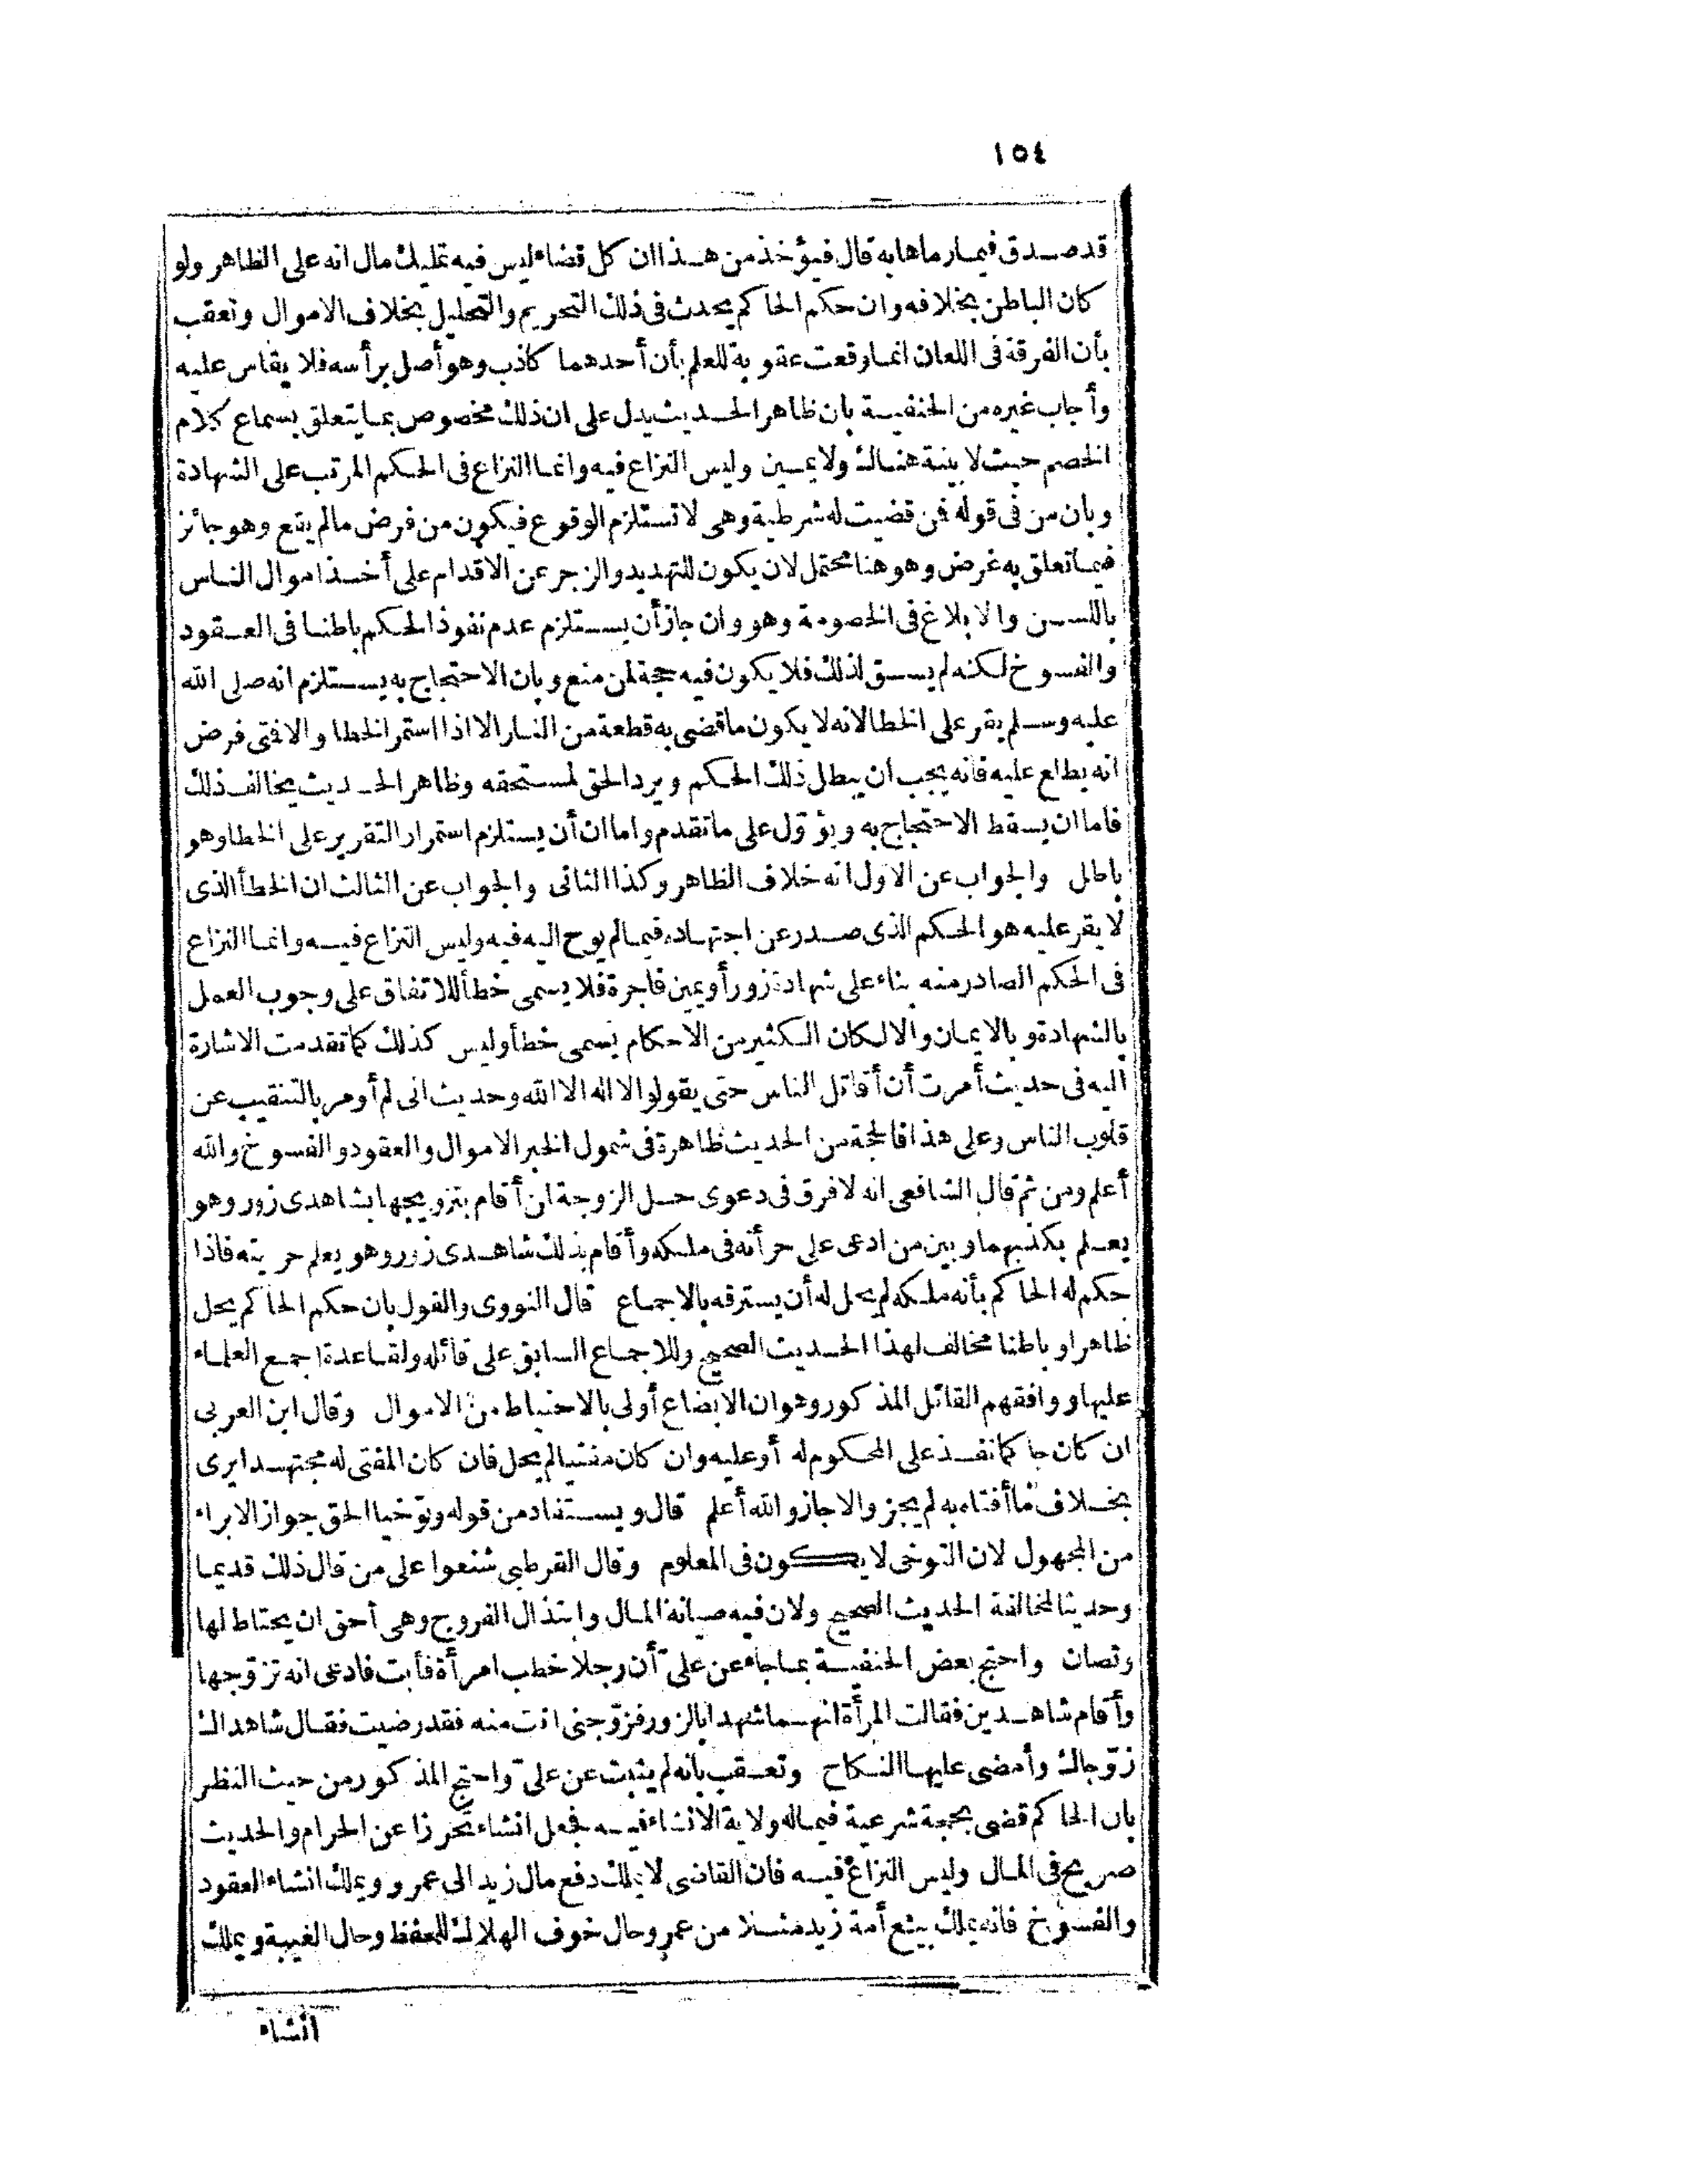 ١٥٤
قد صدق فيما رماها به قال فيؤخذ من هذا ان كل قضاء ليس فيه تمليك مال انه على الظاهر ولو
كان الباطن بخلافه وان حكم الحاكم يحدث فى ذلك التحريم والتحليل بخلاف الاموال وتعقب
بأن الفرقة فى اللعان انما وقعت عقوبة للعلم بأن أحدهما كاذب وهو أصل برأسه فلا يقاس عليه
وأجاب غيره من الحنفية بان ظاهر الحديث يدل على ان ذلك مخصوص بما يتعلق بسماع كلام
الخصم حيث لا بينة هناك ولا يمين وليس النزاع فيه وانما النزاع فى الحكم المرتب على الشهادة
وبان من فى قوله فمن قضيت له شرطية وهى لا تستلزم الوقوع فيكون من فرض مالم يقع وهو جائز
فيما تعلق به غرض وهو هنا محتمل لان يكون للتهديد والزجر عن الاقدام على أخذ اموال الناس
باللسن والابلاغ فى الخصومة وهو وان جاز أن يستلزم عدم نفوذ الحكم باطنا فى العقود
والفسوخ لكنه لم يسق لذلك فلا يكون فيه حجة لمن منع وبان الاحتجاج به يستلزم انه صلى الله
عليه وسلم يقر على الخطا لانه لا يكون ما قضى به قطعة من النار الا اذا استمر الخطا والا فمتى فرض
انه يطلع عليه فانه يجب ان يبطل ذلك الحكم ويرد الحق لمستحقه وظاهر الحديث يخالف ذلك
فاما ان يسقط الاحتجاج به ويؤول على ما تقدم واما ان أن يستلزم استمرار التقرير على الخطا وهو
باطل والجواب عن الاول انه خلاف الظاهر وكذا الثانى والجواب عن الثالث ان الخطأ الذى
لا يقر عليه هو الحكم الذى صدر عن اجتهاده فيما لم يوح اليه فيه وليس النزاع فيه وانما النزاع
فى الحكم الصادر منه بناء على شهادة زور أو يمين فاجرة فلا يسمى خطأ للاتفاق على وجوب العمل
بالشهادة وبالايمان والا لكان الكثير من الاحكام يسمى خطأ وليس كذلك كما تقدمت الاشارة
اليه فى حديث أمرت أن أقاتل الناس حتى يقولوا لا اله الا الله وحديث انى لم أومر بالتنقيب عن
قلوب الناس وعلى هذا فالحجة من الحديث ظاهرة فى شمول الخبر الاموال والعقود والفسوخ والله
أعلم ومن ثم قال الشافعى انه لا فرق فى دعوى حل الزوجة لمن أقام بتزويجها بشاهدى زور وهو
يعلم بكذبهما وبين من ادعى على حر أنه فى ملكه وأقام بذلك شاهدى زور وهو يعلم حريته فاذا
حكم له الحاكم بأنه ملكه لم يحل له أن يسترقه بالاجماع قال النووى والقول بان حكم الحاكم يحل
ظاهرا وباطنا مخالف لهذا الحديث الصحيح وللاجماع السابق على قائله ولقاعدة اجمع العلماء
عليها ووافقهم القائل المذكور وهو ان الابضاع أولى بالاحتياط من الاموال وقال ابن العربى
ان كان حاكما نفذ على المحكوم له أو عليه وان كان مفتيا لم يحل فان كان المفتى له مجتهدا يرى
بخلاف ما أفتاه به لم يجز والا جاز والله أعلم قال ويستفاد من قوله وتوخيا الحق جواز الابراء
من المجهول لان التوخى لا يكون فى المعلوم وقال القرطبى شنعوا على من قال ذلك قديما
وحديثا لمخالفة الحديث الصحيح ولان فيه صيانة المال وابتذال الفروج وهى أحق ان يحتاط لها
وتصان واحتج بعض الحنفية بما جاء عن على أن رجلا خطب امرأة فأبت فادعى انه تزوجها
وأقام شاهدين فقالت المرأة انهما شهدا بالزور فزوجنى انت منه فقد رضيت فقال شاهداك
زوجاك وأمضى عليها النكاح وتعقب بانه لم يثبت عن على واحتج المذكور من حيث النظر
بان الحاكم قضى بحجة شرعية فيما له ولاية الانشاء فيه فجعل انشاء تحرزا عن الحرام والحديث
صريح فى المال وليس النزاع فيه فان القاضى لا يملك دفع مال زيد الى عمرو ويملك انشاء العقود
والفسوخ فانه يملك بيع أمة زيد مثلا من عمرو حال خوف الهلاك للحفظ وحال الغيبة ويملك
انشاء